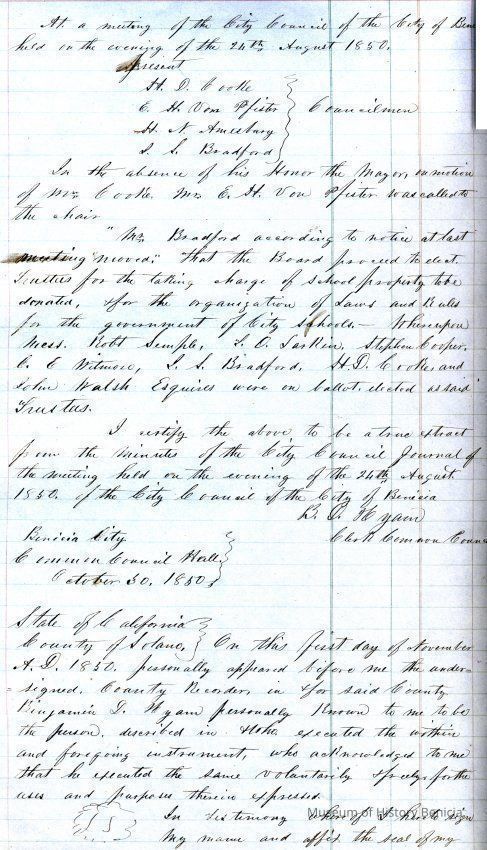 At a meeting of the City Council of the City of Beni
held on the evening of the 24th August 1850.
present
H. D. Cooke
E. H. Von Pfister
H. N. Amesbury
S. S. Bradford
Councilmen
In the absence of his Honor the Mayor, on motion
of Mr. Cooke. Mr. E. H. Von Pfister was called to
the chair
"Mr. Bradford according to notice at last
meeting moved;" that the Board proceed to elect.
Trustees for the taking charge of school property to be
donated, & for the organization of Laws and Rules
for the government of City schools.— Whereupon
Mess. Robt Semple, T. O. Larkin, Stephen Cooper,
C. E. Wetmore, S. S. Bradford, H. D. Cooke, and
John Walsh Esquires were on ballot, elected as said
Trustees.
I certify the above to be a true extract
from the Minutes of the City Council Journal of
the meeting held on the evening of the 24th August.
1850. of the City Council of the City of Benicia
B. D. Hyam
Clerk Common Counc
Benicia City
Common Council Hall
October 30, 1850
State of California
County of Solano, On this first day of November
A.D. 1850. personally appeared before me the under-
signed. County Recorder, in & for said County
Benjamin D. Hyam personally known to me to be
the person, described in & who executed the within
and foregoing instrument, who acknowledged to me
that he executed the same voluntarily & freely & for the
uses and purposes therein expressed.
L S
In Testimony whereof I here sign
My name and affix the seal of my
Museum of History Benicia